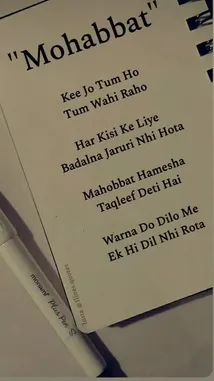 "Mohabbat"
Kee Jo Tum Ho
Tum Wahi Raho
Har Kisi Ke Liye
Badalna Jaruri Nhi Hota
Mahobbat Hamesha
Taqleef Deti Hai
Warna Do Dilo Me
Ek Hi Dil Nhi Rota